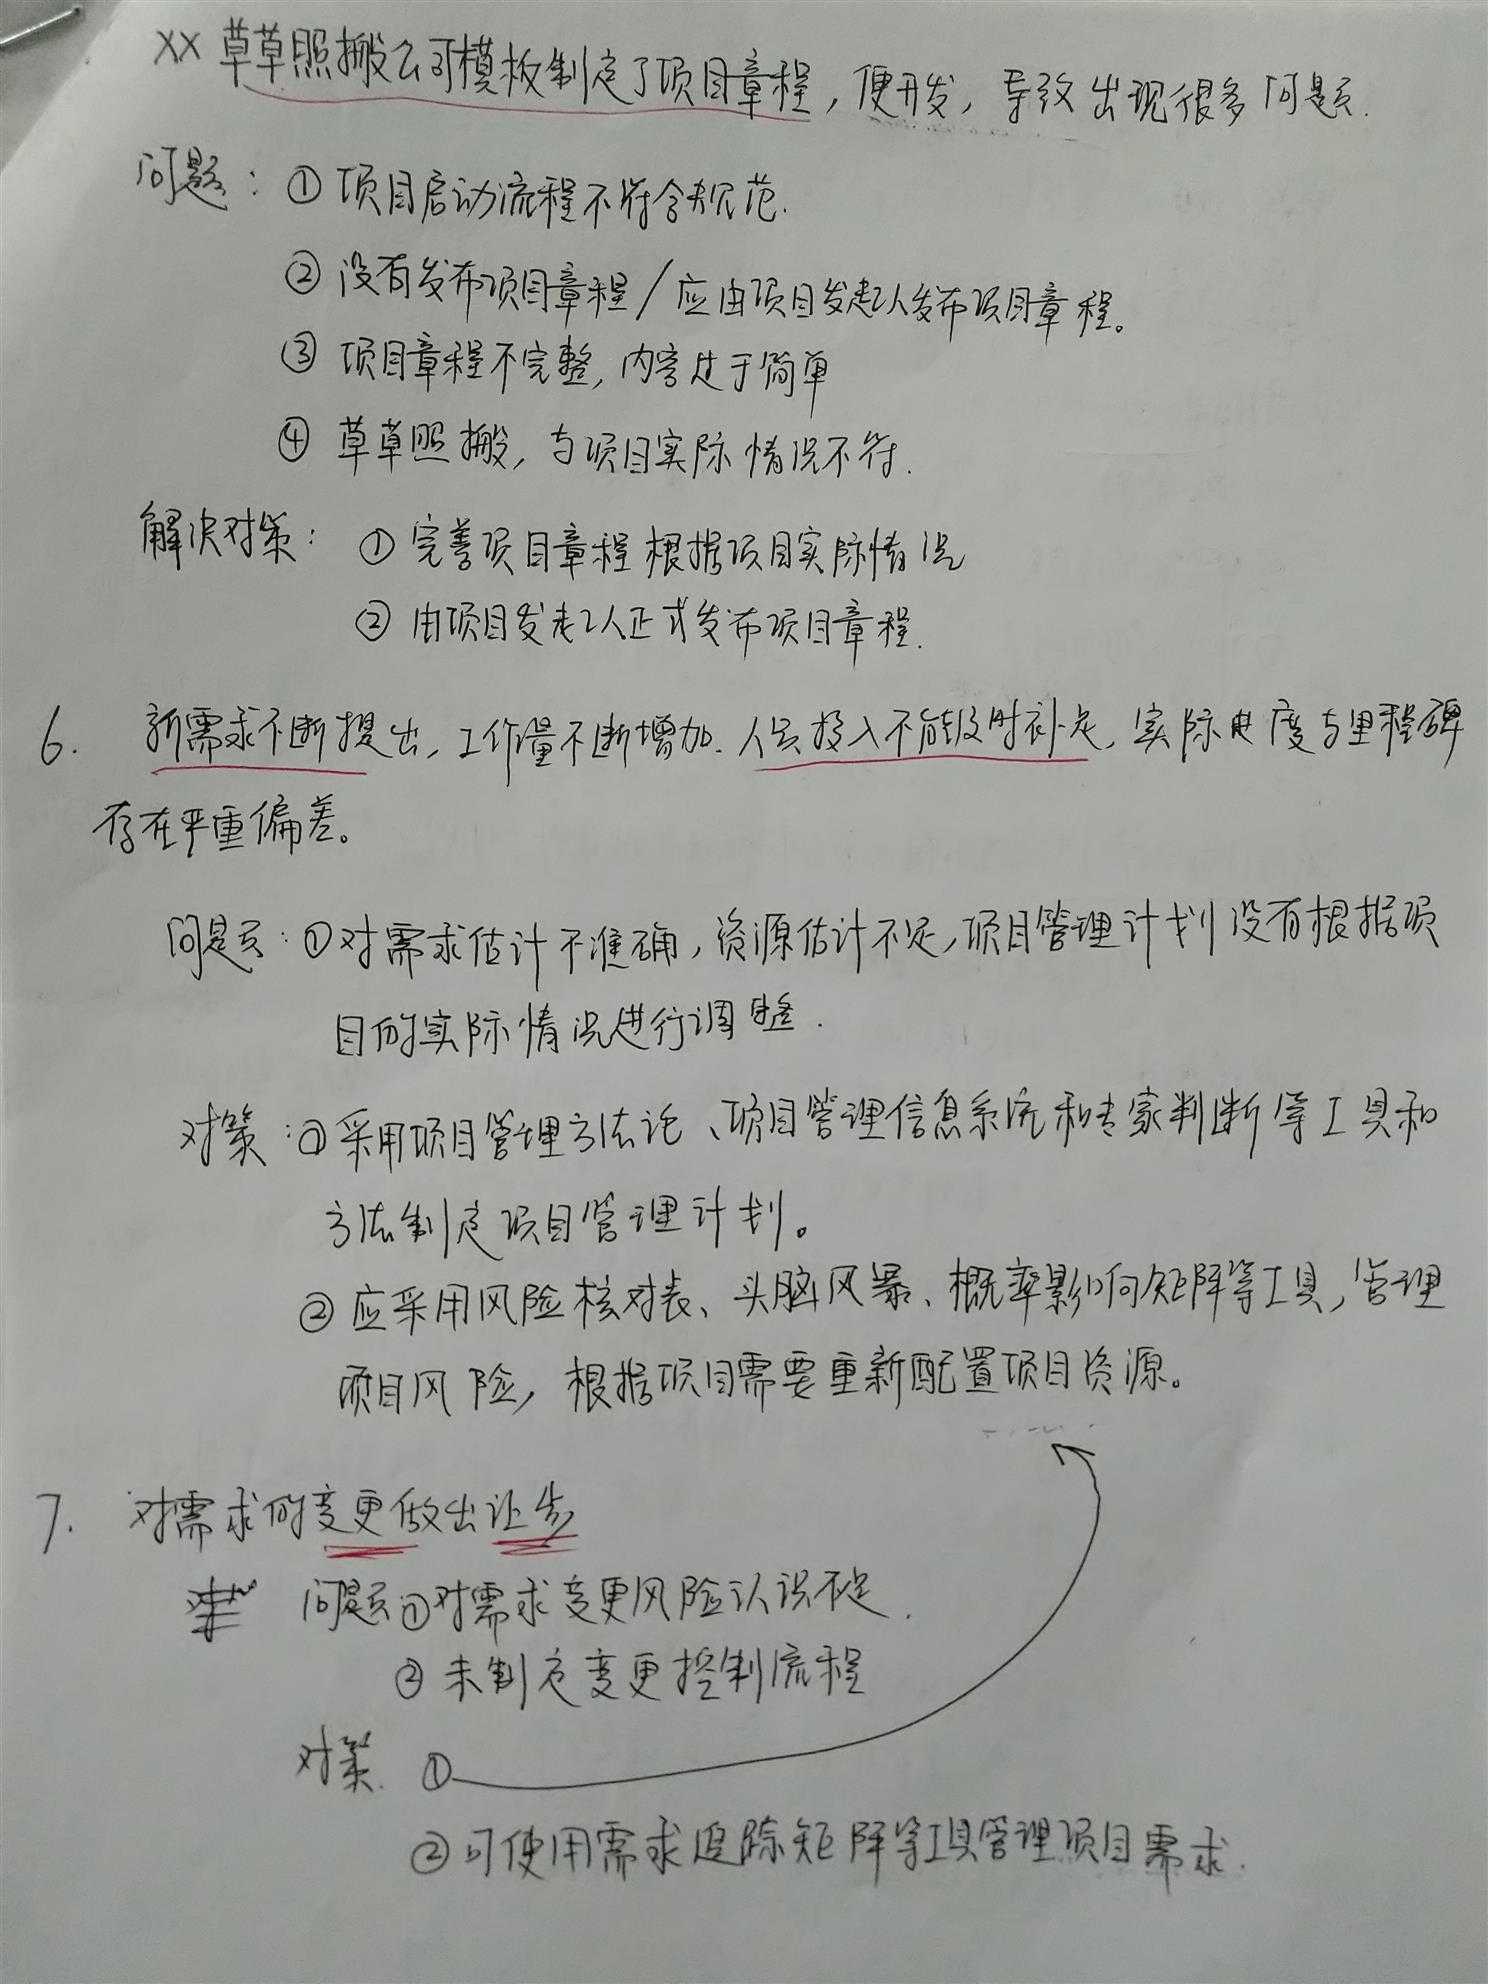 XX 草草照搬公司模板制定了项目章程，便开发，导致出现很多问题.
问题：① 项目启动流程不符合规范.
② 没有发布项目章程/应由项目发起人发布项目章程。
③ 项目章程不完整，内容过于简单
④ 草草照搬，与项目实际情况不符.
解决对策：① 完善项目章程根据项目实际情况
② 由项目发起人正式发布项目章程.
6. 新需求不断提出，工作量不断增加.人员投入不能及时补足，实际进度与里程碑
存在严重偏差。
问题：①对需求估计不准确，资源估计不足，项目管理计划没有根据项
目的实际情况进行调整.
对策：①采用项目管理方法论、项目管理信息系统和专家判断等工具和
方法制定项目管理计划。
② 应采用风险核对表、头脑风暴、概率影响矩阵等工具，管理
项目风险，根据项目需要重新配置项目资源。
7. 对需求的变更做出让步
问题①对需求变更风险认识不足.
② 未制定变更控制流程
对策. ①
②可使用需求追踪矩阵等工具管理项目需求.